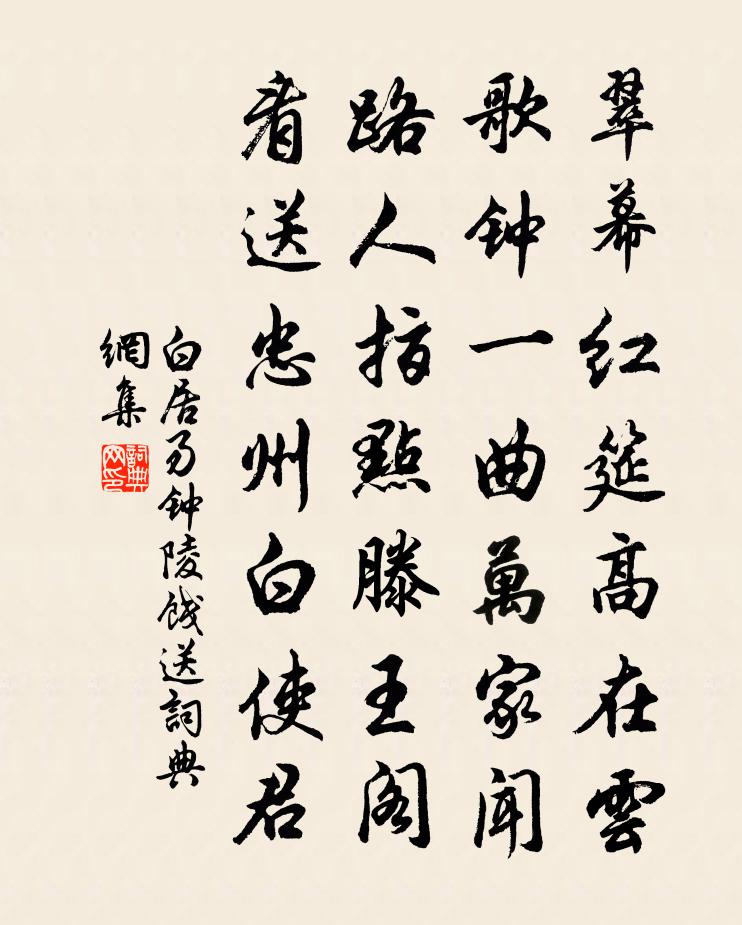 翠幕紅筵高在雲
歌钟一曲萬家闻
路人指點滕王阁
看送忠州白使君
白居易钟陵餞送詞典
網集
詞典
网印